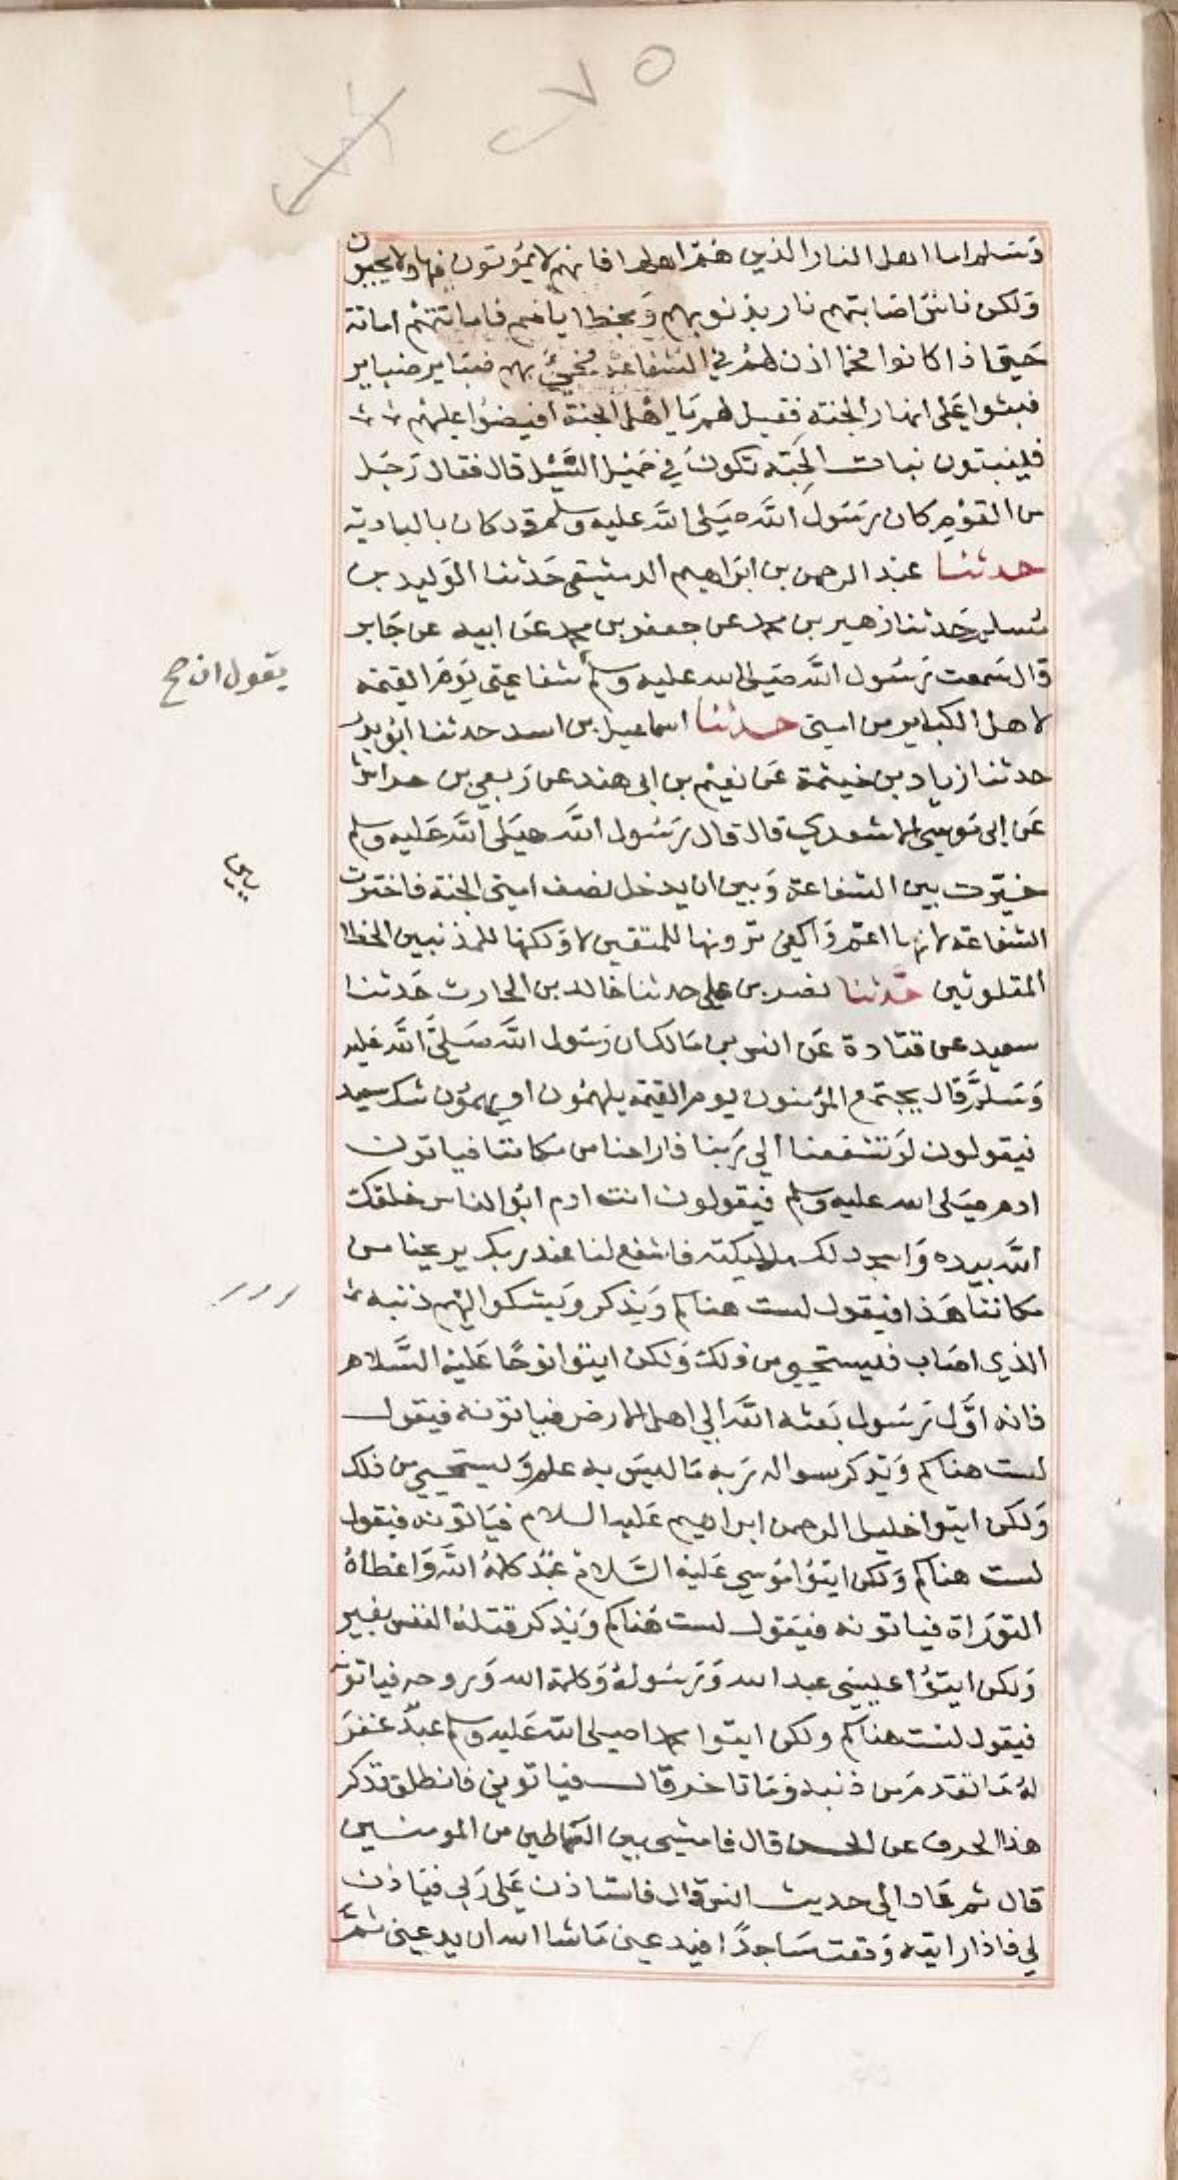 ٧٥
وسلم اما اهل النار الذين هم اهلها فانهم لا يموتون فيها ولا يحيون
ولكن ناس اصابتهم نار بذنوبهم وبخطاياهم فاماتتهم اماتة
حتى اذا كانوا فحما اذن لهم في الشفاعة فجئ بهم ضباير ضباير
فبثوا على انهار الجنة فقيل لهم يا اهل الجنة افيضوا عليهم
فلينبتون نبات الحبة تكون في حميل السيل قال فقال رجل
من القوم كان رسول الله صلى الله عليه وسلم قد كان بالبادية
حدثنا عبد الرحمن بن ابراهيم الدمشقي حدثنا الوليد بن
مسلم حدثنا زهير بن محمد عن جعفر بن محمد عن ابيه عن جابر
قال سمعت رسول الله صلى الله عليه وسلم شفاعتي يوم القيمة
يقول ان صح
لاهل الكباير من امتي حدثنا اسماعيل بن اسد حدثنا ابو بدر
حدثنا زياد بن خيثمة عن نعيم بن ابي هند عن ربعي بن حراش
عن ابي موسى الاشعري قال قال رسول الله صلى الله عليه وسلم
خيرت بين الشفاعة وبين ان يدخل نصف امتي الجنة فاخترت
الشفاعة لانها اعم واكفى ترونها للمتقين لا ولكنها للمذنبين الخطا
المتلوثين حدثنا نصر بن علي حدثنا خالد بن الحارث حدثنا
سعيد عن قتادة عن انس بن مالك ان رسول الله صلى الله عليه
وسلم قال يجتمع المؤمنون يوم القيمة يلهمون او يهمون شك سعيد
فيقولون لو تشفعنا الي ربنا فاراحنا من مكاننا فياتون
ادم صلى الله عليه وسلم فيقولون انت ادم ابو الناس خلقك
الله بيده واسجد لك ملايكته فاشفع لنا عند ربك يرحنا من
مكاننا هذا فيقول لست هناكم ويذكر ويشكوا اليهم ذنبه
الذي اصاب فيستحيي من ذلك ولكن ايتوا نوحا عليه السلام
فانه اول رسول بعثه الله الي اهل الارض فياتونه فيقول
لست هناكم ويذكر سواله ربه ما ليس به علم ويستحيي من ذلك
ولكن ايتوا خليل الرحمن ابراهيم عليه السلام فياتونه فيقول
لست هناكم ولكن ايتوا موسي عليه السلام عبد كلمه الله واعطاه
التوراة فياتونه فيقول لست هناكم ويذكر قتله النفس بغير
ولكن ايتوا عيسى عبد الله ورسوله وكلمة الله وروحه فياتونه
فيقول لست هناكم ولكن ايتوا محمدا صلى الله عليه وسلم عبد غفر
له ما تقدم من ذنبه وما تاخر قال فياتوني فانطلق فذكر
هذا الحرف عن الحسن قال فامشي بين السماطين من المومنين
قال ثم عاد الي حديث انس قال فاستاذن على ربي فياذن
لي فاذا رايته وقعت ساجدا فيدعني ما شا الله ان يدعني ثم